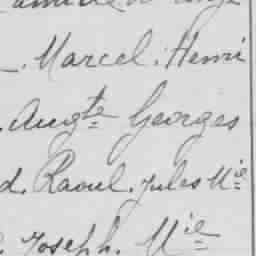 Marcel. Henri
Augte Georges
d. Raoul. Jules Mie
Joseph. Mie